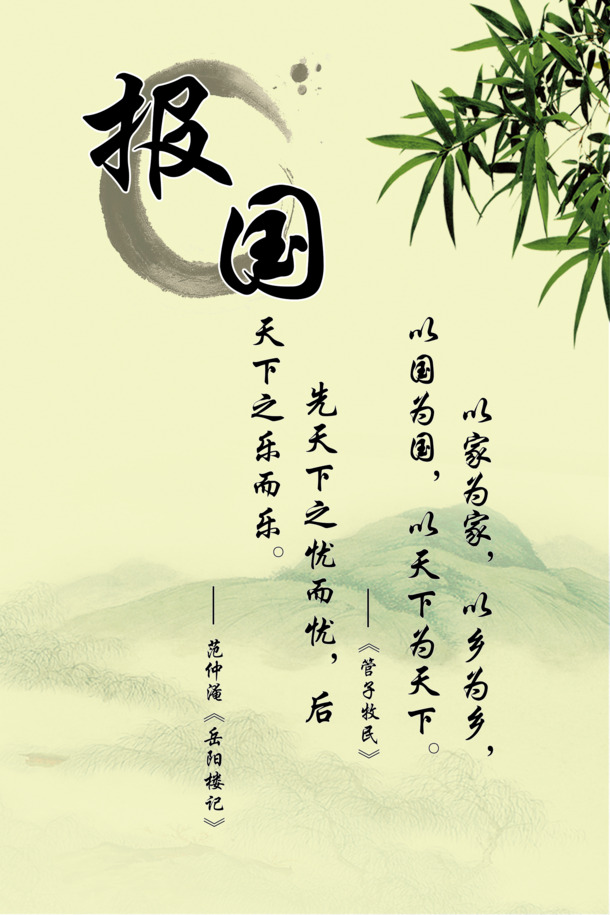 报
国
以家为家，以乡为乡，
以国为国，以天下为天下。
——《管子牧民》
先天下之忧而忧，后
天下之乐而乐。
——范仲淹《岳阳楼记》